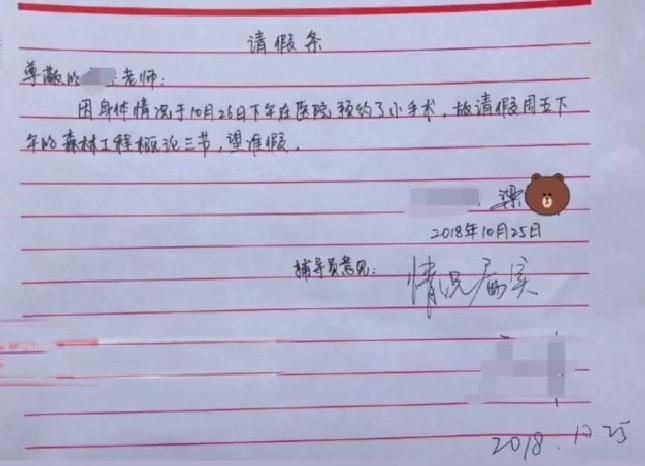 请假条
尊敬的 老师：
因身体情况于10月26日下午在医院预约了小手术，故请假周五下
午的森林工程概论三节，望准假。
梁
2018年10月25日
辅导员意见：
情况属实
2018.10.25